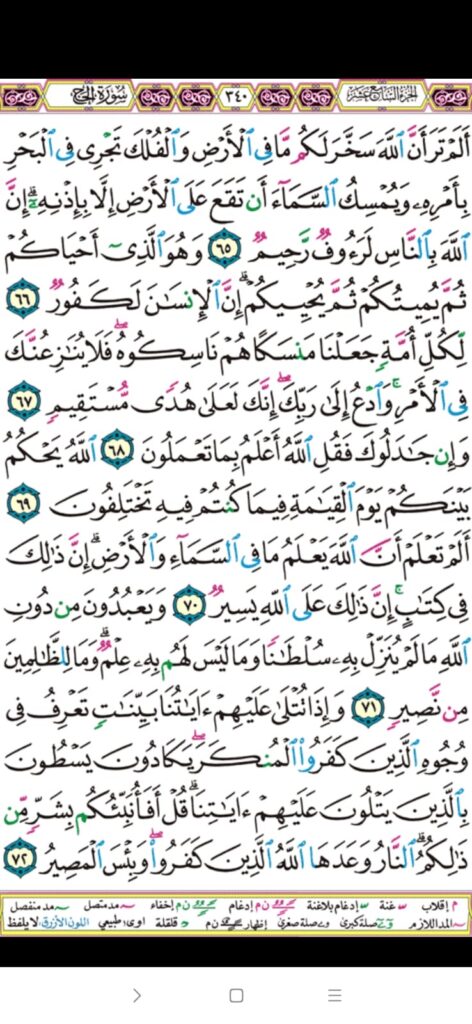 سُورَةُ الحَجِّ ٣٤٠ الجزء السابع عشر
أَلَمْ تَرَ أَنَّ ٱللَّهَ سَخَّرَ لَكُم مَّا فِى ٱلْأَرْضِ وَٱلْفُلْكَ تَجْرِى فِى ٱلْبَحْرِ
بِأَمْرِهِۦ وَيُمْسِكُ ٱلسَّمَآءَ أَن تَقَعَ عَلَى ٱلْأَرْضِ إِلَّا بِإِذْنِهِۦٓ ۗ إِنَّ
ٱللَّهَ بِٱلنَّاسِ لَرَءُوفٌ رَّحِيمٌ ٦٥ وَهُوَ ٱلَّذِىٓ أَحْيَاكُمْ
ثُمَّ يُمِيتُكُمْ ثُمَّ يُحْيِيكُمْ ۗ إِنَّ ٱلْإِنسَـٰنَ لَكَفُورٌ ٦٦
لِّكُلِّ أُمَّةٍ جَعَلْنَا مَنسَكًا هُمْ نَاسِكُوهُ ۖ فَلَا يُنَـٰزِعُنَّكَ
فِى ٱلْأَمْرِ ۚ وَٱدْعُ إِلَىٰ رَبِّكَ ۖ إِنَّكَ لَعَلَىٰ هُدًى مُّسْتَقِيمٍ ٦٧
وَإِن جَـٰدَلُوكَ فَقُلِ ٱللَّهُ أَعْلَمُ بِمَا تَعْمَلُونَ ٦٨ ٱللَّهُ يَحْكُمُ
بَيْنَكُمْ يَوْمَ ٱلْقِيَـٰمَةِ فِيمَا كُنتُمْ فِيهِ تَخْتَلِفُونَ ٦٩
أَلَمْ تَعْلَمْ أَنَّ ٱللَّهَ يَعْلَمُ مَا فِى ٱلسَّمَآءِ وَٱلْأَرْضِ ۗ إِنَّ ذَٰلِكَ
فِى كِتَـٰبٍ ۚ إِنَّ ذَٰلِكَ عَلَى ٱللَّهِ يَسِيرٌ ٧٠ وَيَعْبُدُونَ مِن دُونِ
ٱللَّهِ مَا لَمْ يُنَزِّلْ بِهِۦ سُلْطَـٰنًا وَمَا لَيْسَ لَهُم بِهِۦ عِلْمٌ ۗ وَمَا لِلظَّـٰلِمِينَ
مِن نَّصِيرٍ ٧١ وَإِذَا تُتْلَىٰ عَلَيْهِمْ ءَايَـٰتُنَا بَيِّنَـٰتٍ تَعْرِفُ فِى
وُجُوهِ ٱلَّذِينَ كَفَرُوا۟ ٱلْمُنكَرَ ۖ يَكَادُونَ يَسْطُونَ
بِٱلَّذِينَ يَتْلُونَ عَلَيْهِمْ ءَايَـٰتِنَا ۗ قُلْ أَفَأُنَبِّئُكُم بِشَرٍّ مِّن
ذَٰلِكُمُ ۗ ٱلنَّارُ وَعَدَهَا ٱللَّهُ ٱلَّذِينَ كَفَرُوا۟ ۖ وَبِئْسَ ٱلْمَصِيرُ ٧٢
م إقلاب غنة إدغام بلاغنة ن م إدغام ن م إخفاء مد متصل مد منفصل
المد اللازم صلة كبرى صلة صغرى إظهار ن م قلقلة اوى: طبيعي اللون الأزرق: لا يلفظ